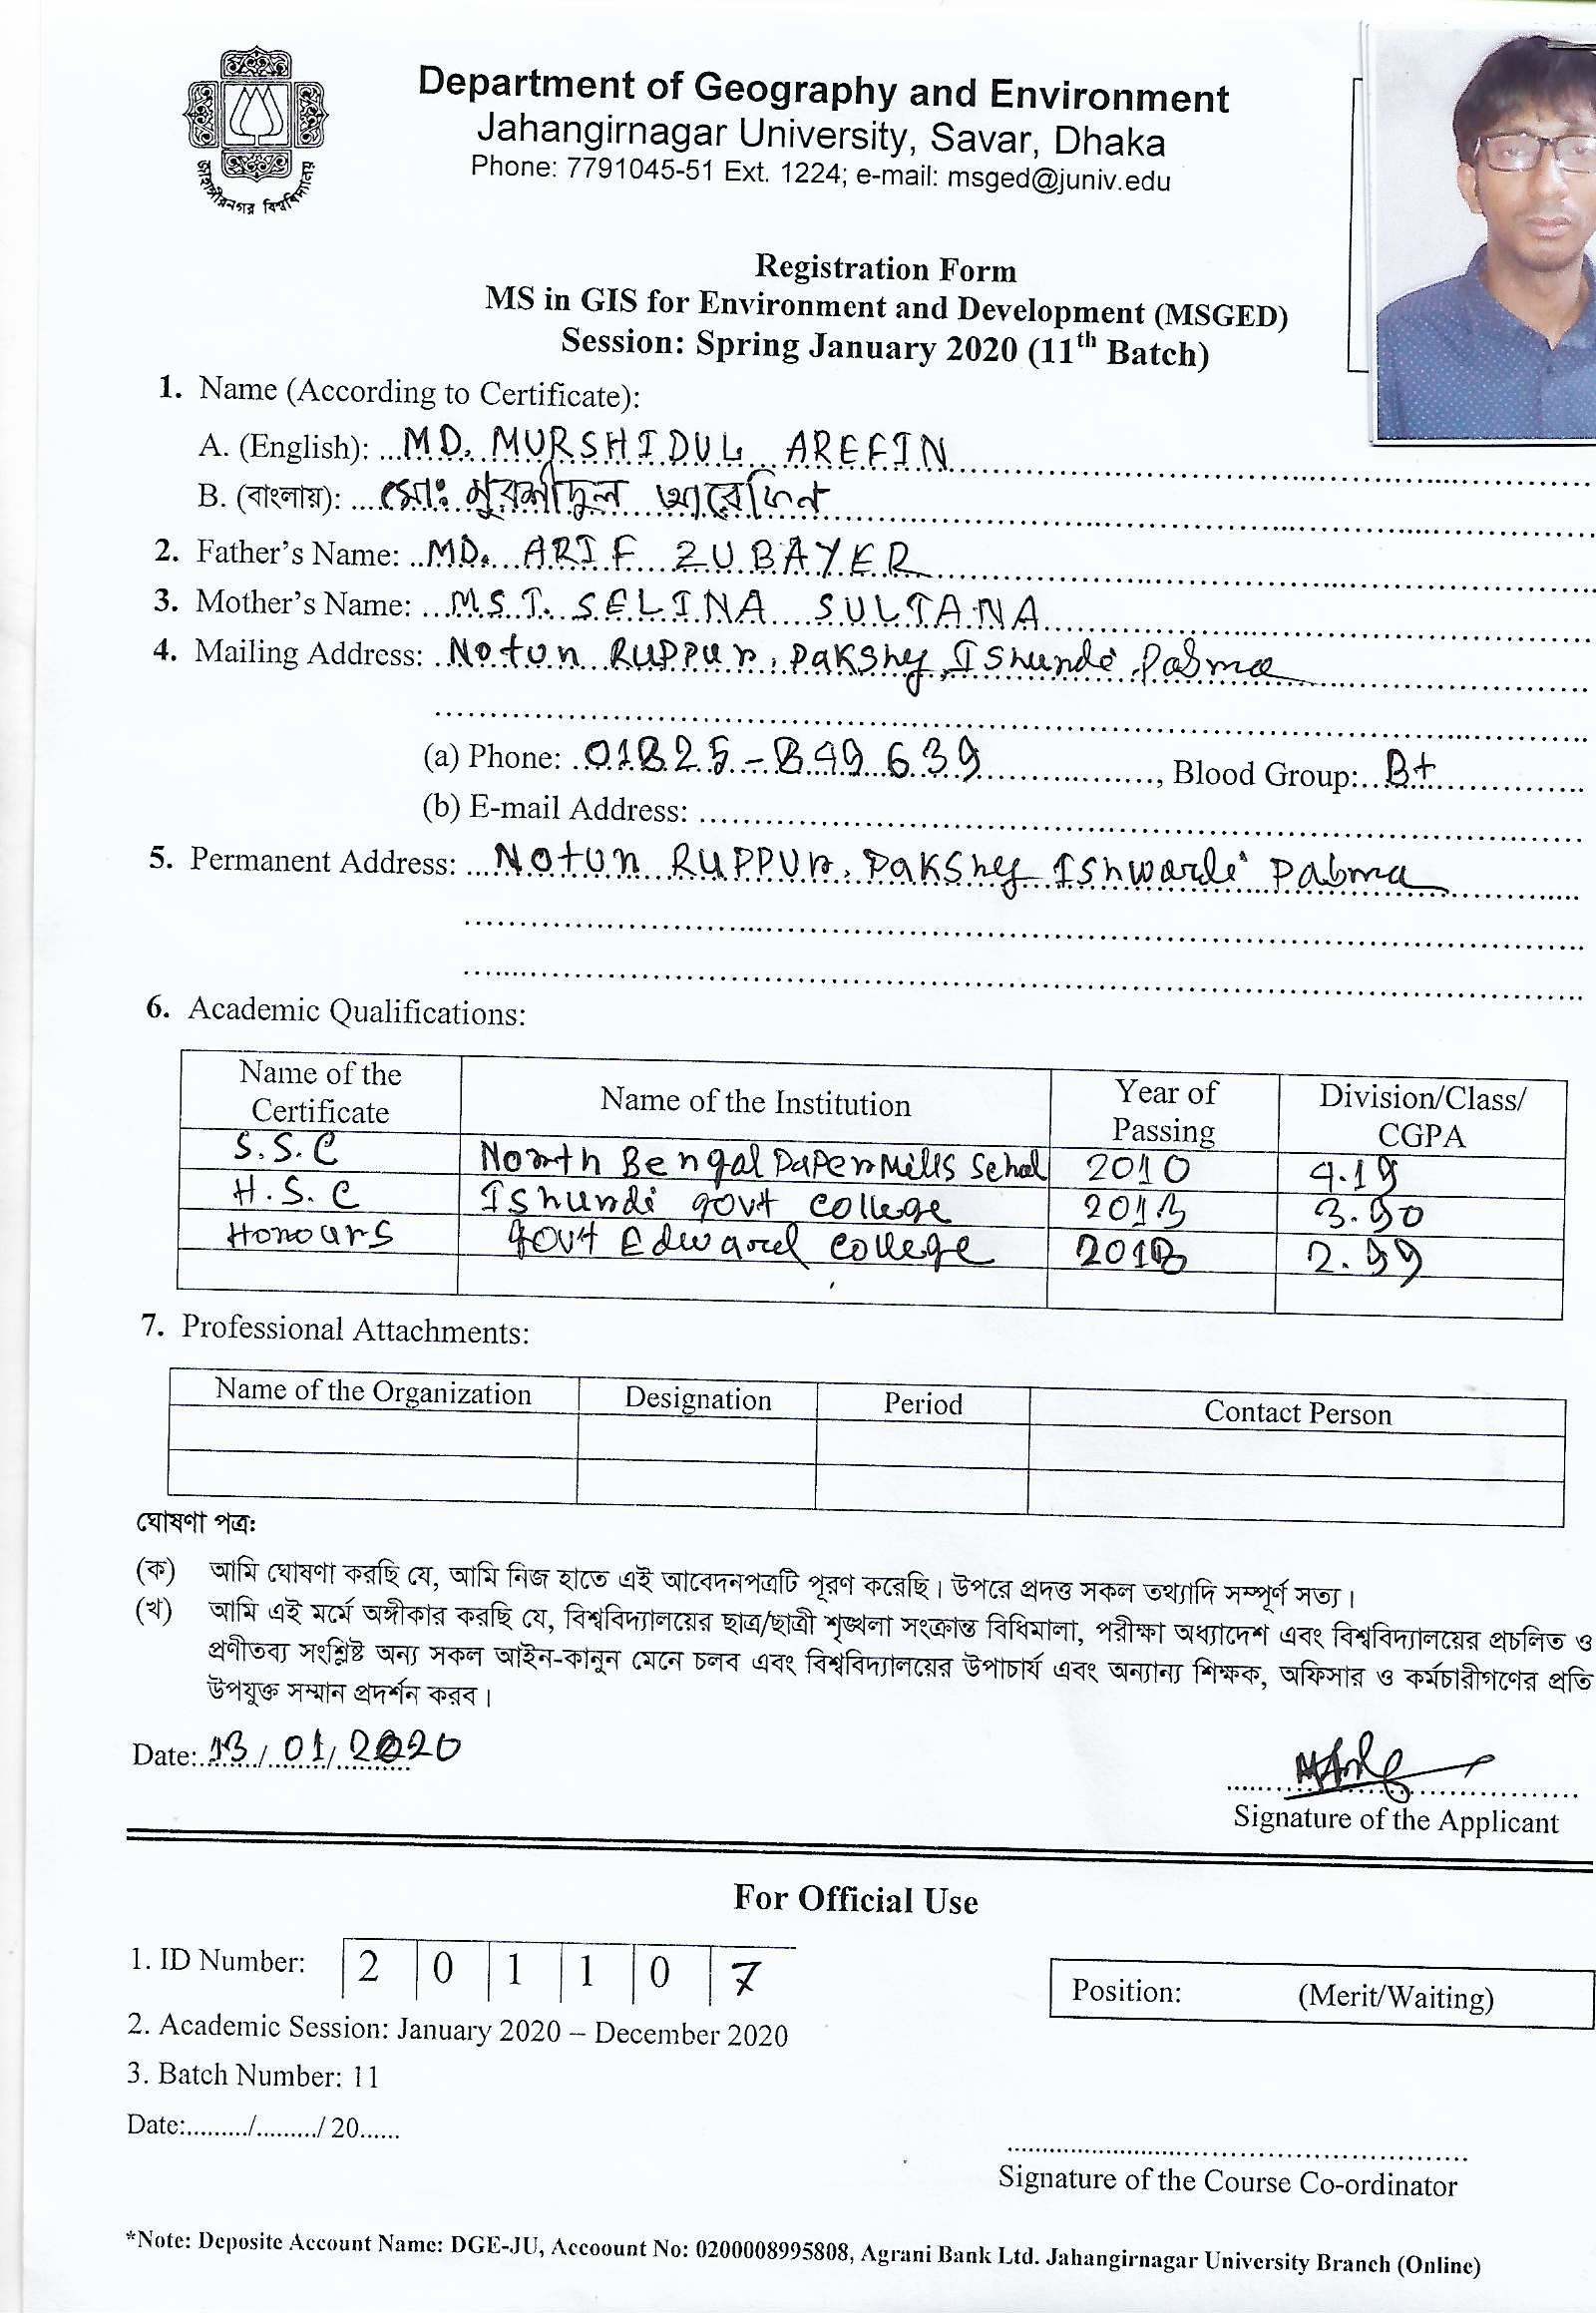 জাহাঙ্গীরনগর বিশ্ববিদ্যালয়
Department of Geography and Environment
Jahangirnagar University, Savar, Dhaka
Phone: 7791045-51 Ext. 1224; e-mail: msged@juniv.edu
Registration Form
MS in GIS for Environment and Development (MSGED)
Session: Spring January 2020 (11th Batch)
1. Name (According to Certificate):
A. (English): MD. MURSHIDUL AREFIN
B. (বাংলায়): মোঃ মুরশীদুল আরেফিন
2. Father's Name: MD. ARIF ZUBAYER
3. Mother's Name: MST. SELINA SULTANA
4. Mailing Address: Notun Ruppur, Pakshy, Ishurdi Pabna
(a) Phone: 01825-849639, Blood Group: B+
(b) E-mail Address:
5. Permanent Address: Notun Ruppur, Pakshy Ishwardi Pabna
6. Academic Qualifications:
Name of the Certificate Name of the Institution Year of Passing Division/Class/ CGPA
S.S.C North Bengal Paper Mills School 2010 4.19
H.S.C Ishurdi govt college 2013 3.90
Honours govt Edward college 2018 2.99
7. Professional Attachments:
Name of the Organization Designation Period Contact Person
ঘোষণা পত্র:
(ক) আমি ঘোষণা করছি যে, আমি নিজ হাতে এই আবেদনপত্রটি পূরণ করেছি। উপরে প্রদত্ত সকল তথ্যাদি সম্পূর্ণ সত্য।
(খ) আমি এই মর্মে অঙ্গীকার করছি যে, বিশ্ববিদ্যালয়ের ছাত্র/ছাত্রী শৃঙ্খলা সংক্রান্ত বিধিমালা, পরীক্ষা অধ্যাদেশ এবং বিশ্ববিদ্যালয়ের প্রচলিত ও
প্রণীতব্য সংশ্লিষ্ট অন্য সকল আইন-কানুন মেনে চলব এবং বিশ্ববিদ্যালয়ের উপাচার্য এবং অন্যান্য শিক্ষক, অফিসার ও কর্মচারীগণের প্রতি
উপযুক্ত সম্মান প্রদর্শন করব।
Date: 13/01/2020
Signature of the Applicant
For Official Use
1. ID Number: 2 0 1 1 0 7
Position: (Merit/Waiting)
2. Academic Session: January 2020 – December 2020
3. Batch Number: 11
Date:........./........./ 20......
Signature of the Course Co-ordinator
*Note: Deposite Account Name: DGE-JU, Accoount No: 0200008995808, Agrani Bank Ltd. Jahangirnagar University Branch (Online)